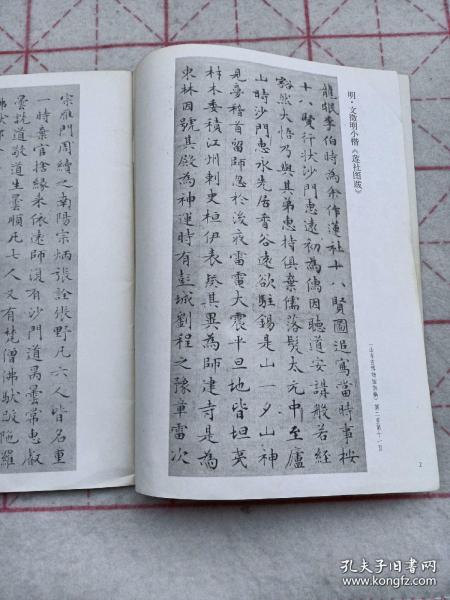 明·文徵明小楷《莲社图跋》
龍眠李伯時為余作蓮社十八賢圖追寫當時事按
十八賢行狀沙門惠遠初為儒因聽道安講般若經
豁然大悟乃與其弟惠持俱棄儒落髮太元中至廬
山時沙門惠永先居香谷遠欲駐錫是山一夕山神
見夢稽首留師忽於後夜雷電大震平旦地皆坦夷
材木委積江州刺史桓伊表奏其異為師建寺是為
東林因號其殿為神運時有彭城劉程之豫章雷次
2
宗雁門周續之南陽宗炳張詮張野凡六人皆名重
一時棄官捨緣來依遠師復有沙門道昺曇常惠叡
曇詵道敬道生曇順凡七人又有梵僧佛馱跋陀羅
孔夫子旧书网
www.kongfz.com